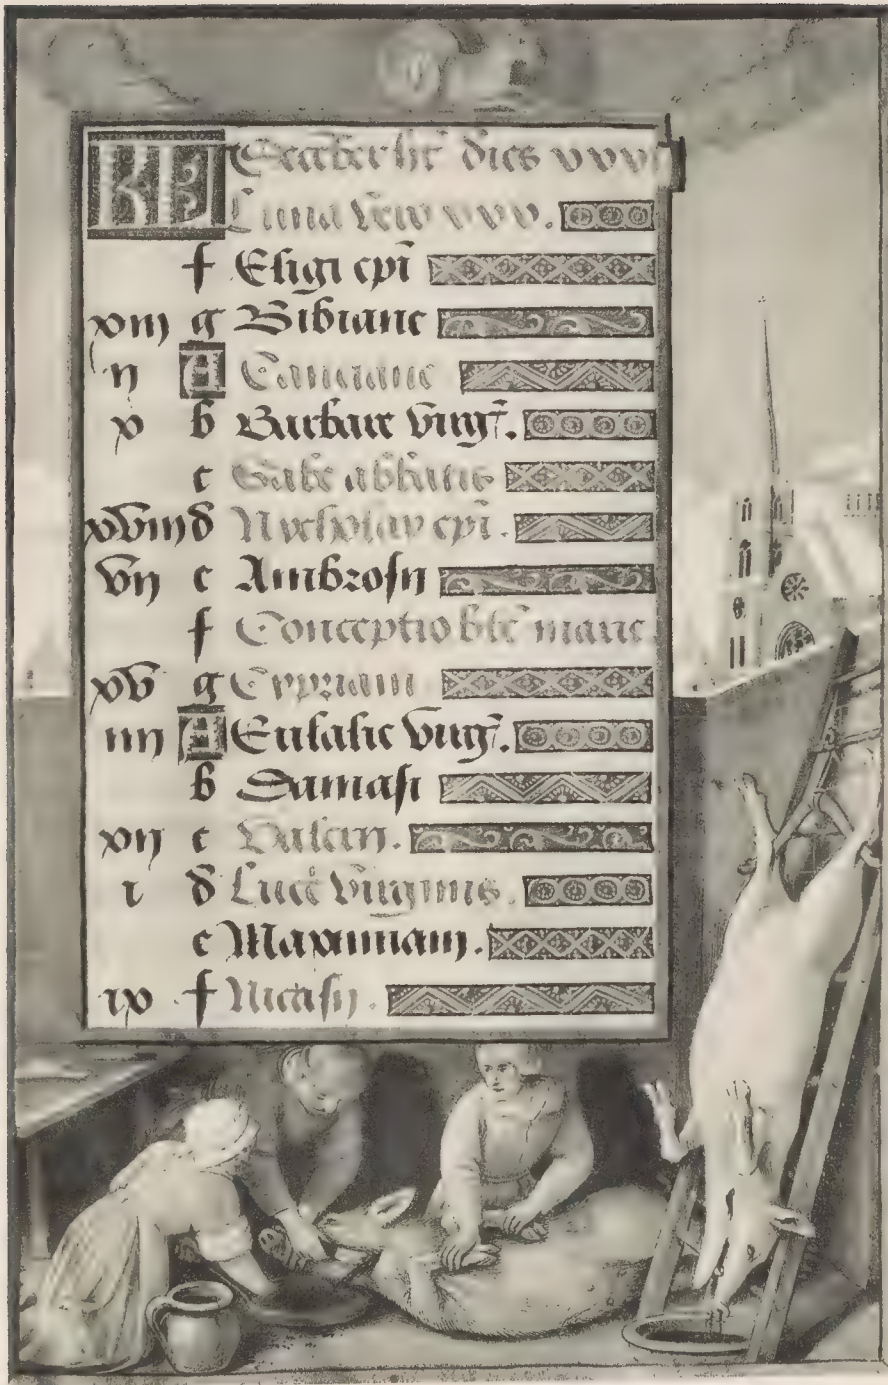 KL December ht dies xxxi
Luna vero xxx.
f Eligi epi
xiii g Bibiane
ii A Cassiane
x b Barbare virg.
c Sabe abbatis
xviii d Nycholay epi.
vii e Ambrosii
f Conceptio bte marie.
xv g Cypriani
iiii A Eulalie virg.
b Damasi
xii c Valerii.
i d Lucie virginis.
e Maximiani.
ix f Nicasii.